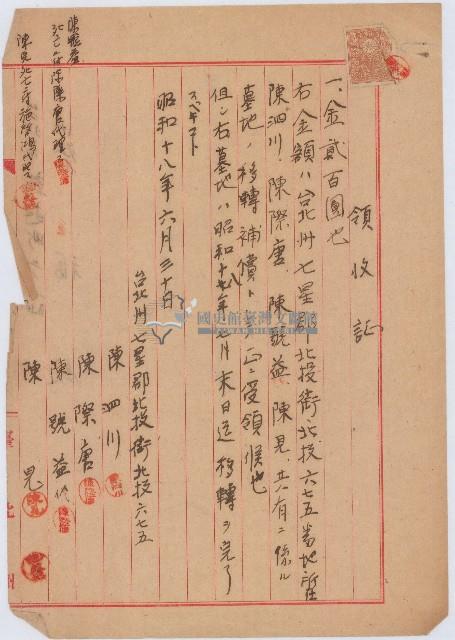 領收証
一、金貳百圓也
右金額ハ台北州七星郡北投街北投六七五番地所在
陳泗川、陳際唐、陳號益、陳晃、共有ニ係ル
墓地ノ移轉補償トシテ正ニ受領候也
但シ右墓地ハ昭和十八年七月末日迄移轉ヲ完了
スベキコト
昭和十八年六月三十日
台北州七星郡北投街北投六七五
陳泗川
陳際唐
陳號益
陳晃
國史館臺灣文獻館
TAIWAN HISTORICA
北
州